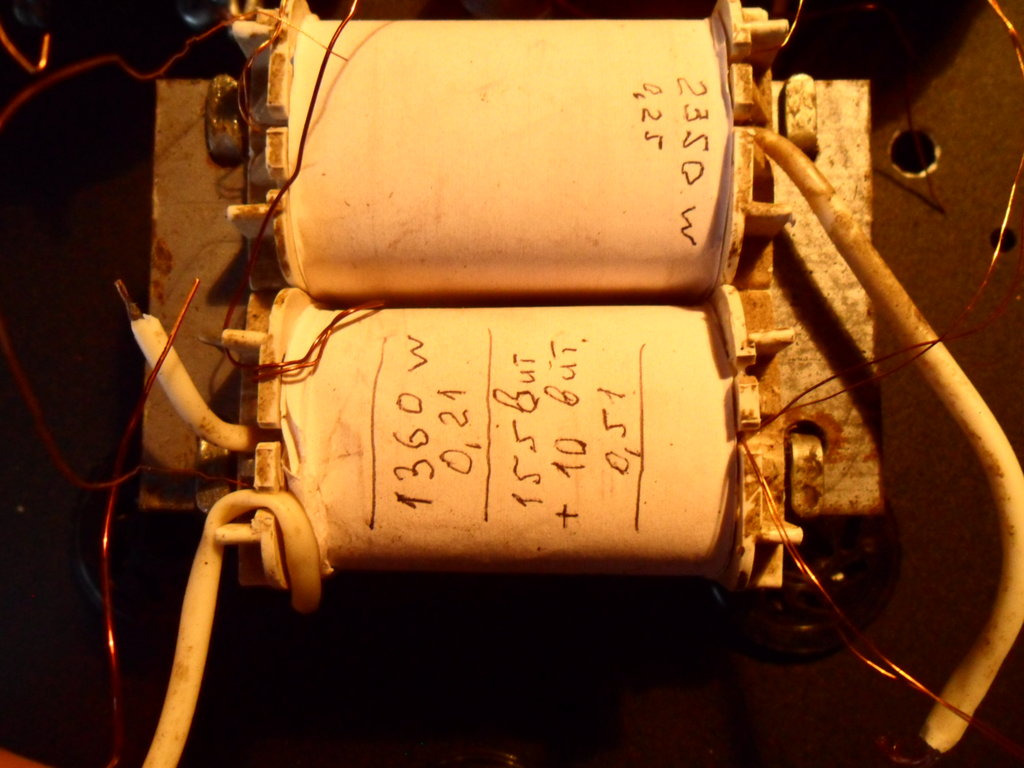 2350 w
0,25
1360 w
0,21
155 вит
+ 10 вит.
0,51